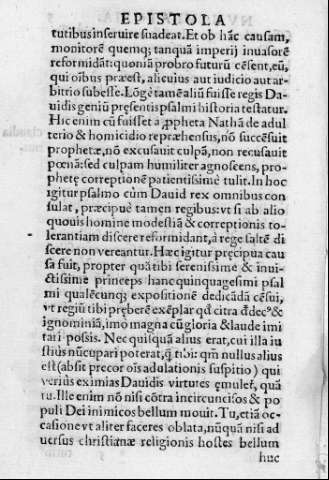 EPISTOLA
tutibus inseruire suadeat. Et ob hãc causam,
monitorẽ quemq; tanquã imperij inuasorẽ
reformidãt: quoniã probro futurũ cẽsent, eũ,
qui oĩbus præest, alicuius aut iudicio aut ar-
bitrio subesse. Lõgè tamẽ aliũ fuisse regis Da-
uidis geniũ pręsentis psalmi historia testatur.
Hic enim cũ fuisset a ꝓpheta Nathã de adul
terio & homicidio repræhensus, nõ succẽsuit
prophetæ, nõ excusauit culpã, non recusauit
pœnã: sed culpam humiliter agnoscens, pro-
phetę correptionẽ patientissimè tulit. In hoc
igitur psalmo cùm Dauid rex omnibus con
sulat, præcipuè tamen regibus: vt si ab alio
quouis homine modestiã & correptionis to-
lerantiam discere reformidant, à rege saltẽ di
scere non vereantur. Hæc igitur pręcipua cau
sa fuit, propter quã tibi serenissime & inui-
ctissime princeps hanc quinquagesimi psal
mi qualẽcunq; expositionẽ dedicãdã cẽsui,
vt regiũ tibi pręberẽ exẽplar qd̃ citra d̃dec⁹ &
ignominiã, imo magna cũ gloria & laude imi
tari possis. Nec quisquã alius erat, cui illa iu
stius nũcupari poterat, q̃ tibi: qm̃ nullus alius
est (absit precor oĩs adulationis suspitio) qui
verius eximias Dauidis virtutes ęmulet, quã
tu. Ille enim nõ nisi cõtra incircuncisos & po
puli Dei inimicos bellum mouit. Tu, etiã oc-
casione vt aliter faceres oblata, nũquã nisi ad
uersus christianæ religionis hostes bellum
huc